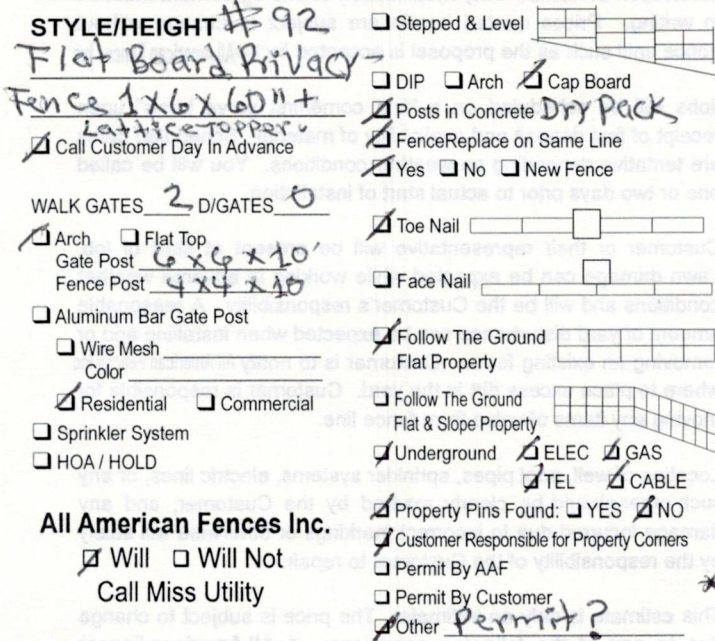 STYLE/HEIGHT #9c
Flat Board Privacy
Fence 1x6x60" +
Lattice topper.
Call Customer Day In Advance
WALK GATES 2 D/GATES 0
Arch Flat Top
Gate Post 6x6x10'
Fence Post 4x4x10
Aluminum Bar Gate Post
Wire Mesh
Color
Residential Commercial
Sprinkler System
HOA / HOLD
All American Fences Inc.
Will Will Not
Call Miss Utility
Stepped & Level
DIP Arch Cap Board
Posts in Concrete Dry Pack
FenceReplace on Same Line
Yes No New Fence
Toe Nail
Face Nail
Follow The Ground
Flat Property
Follow The Ground
Flat & Slope Property
Underground ELEC GAS
TEL CABLE
Property Pins Found: YES NO
Customer Responsible for Property Corners
Permit By AAF
Permit By Customer
Other Permit?